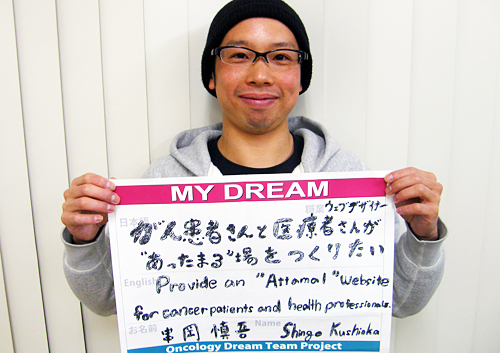 MY DREAM
ウェブデザイナー
日本語
がん患者さんと医療者さんが
"あったまる"場をつくりたい
English
Provide an "Attamal" Website
for cancer patients and health professionals.
お名前 串岡 慎吾 Name Shingo Kushioka
Oncology Dream Team Project